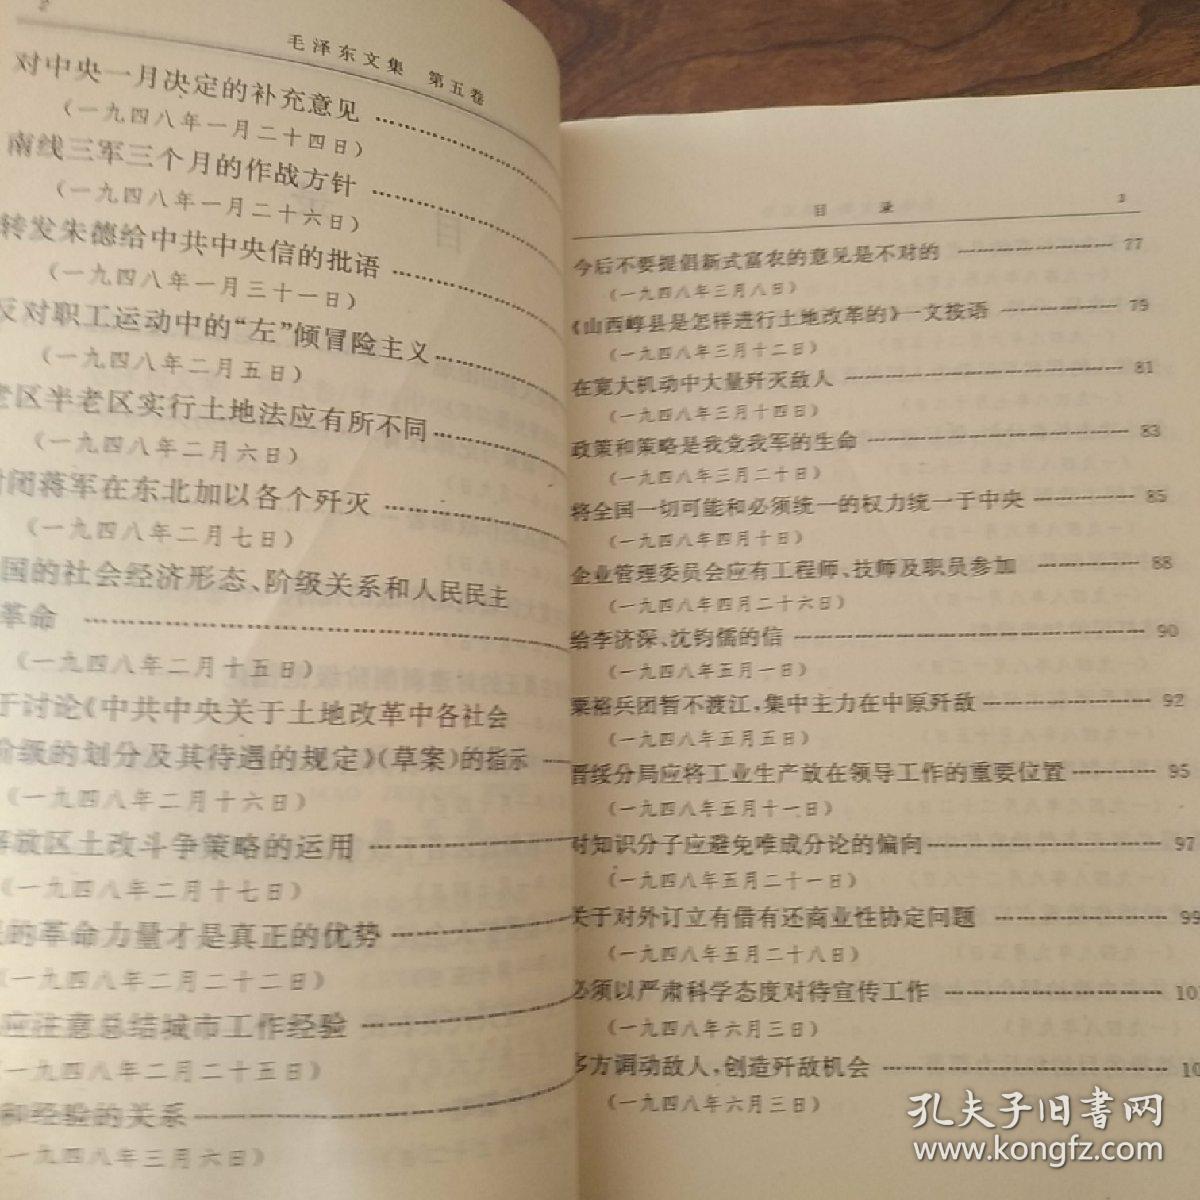 2
毛泽东文集 第五卷
对中央一月决定的补充意见
(一九四八年一月二十四日)
南线三军三个月的作战方针
(一九四八年一月二十六日)
转发朱德给中共中央信的批语
(一九四八年一月三十一日)
反对职工运动中的“左”倾冒险主义
(一九四八年二月五日)
老区半老区实行土地法应有所不同
(一九四八年二月六日)
封闭蒋军在东北加以各个歼灭
(一九四八年二月七日)
国的社会经济形态、阶级关系和人民民主
革命
(一九四八年二月十五日)
于讨论《中共中央关于土地改革中各社会
阶级的划分及其待遇的规定》(草案)的指示
(一九四八年二月十六日)
解放区土改斗争策略的运用
(一九四八年二月十七日)
的革命力量才是真正的优势
(一九四八年二月二十二日)
应注意总结城市工作经验
(一九四八年二月二十五日)
和经验的关系
(一九四八年三月六日)
目 录 3
今后不要提倡新式富农的意见是不对的 77
(一九四八年三月八日)
《山西崞县是怎样进行土地改革的》一文按语 79
(一九四八年三月十二日)
在宽大机动中大量歼灭敌人 81
(一九四八年三月十四日)
政策和策略是我党我军的生命 83
(一九四八年三月二十日)
将全国一切可能和必须统一的权力统一于中央 85
(一九四八年四月十日)
企业管理委员会应有工程师、技师及职员参加 88
(一九四八年四月二十六日)
给李济深、沈钧儒的信 90
(一九四八年五月一日)
粟裕兵团暂不渡江,集中主力在中原歼敌 92
(一九四八年五月五日)
晋绥分局应将工业生产放在领导工作的重要位置 95
(一九四八年五月十一日)
对知识分子应避免唯成分论的偏向 97
(一九四八年五月二十一日)
关于对外订立有借有还商业性协定问题 99
(一九四八年五月二十八日)
必须以严肃科学态度对待宣传工作 10
(一九四八年六月三日)
多方调动敌人,创造歼敌机会 10
(一九四八年六月三日)
孔夫子旧书网
www.kongfz.com